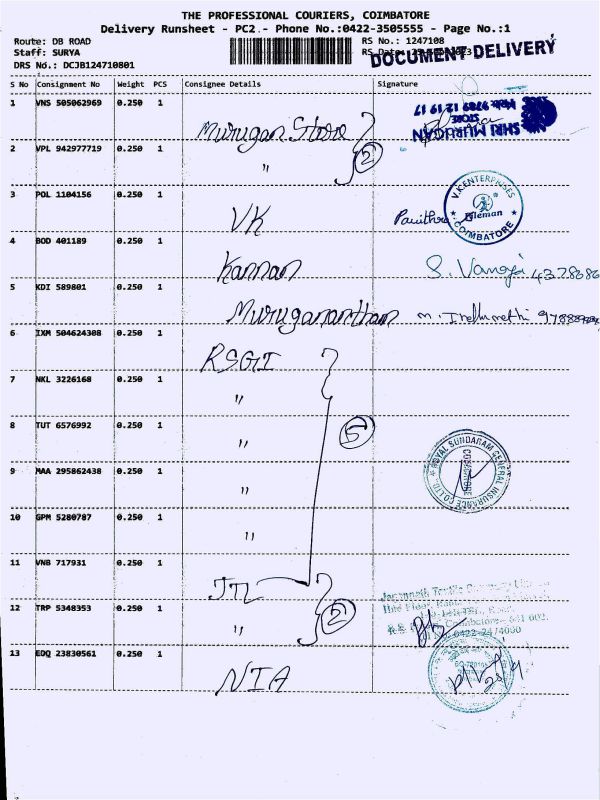 THE PROFESSIONAL COURIERS, COIMBATORE
Delivery Runsheet - PC2 - Phone No.:0422-3505555 - Page No.:1
Route: DB ROAD
RS No.: 1247108
Staff: SURYA
RS Date:
DOCUMENT DELIVERY
DRS No.: DCJB124710801
S No Consignment No Weight PCS Consignee Details Signature
1 VNS 505062969 0.250 1 Murugan Store
SHRI MURUGAN
STORE
Mob: 9789 12 19 17
2 VPL 942977719 0.250 1 " 2
3 POL 1104156 0.250 1 VK Pavithra
V.K.ENTERPRISES
COIMBATORE
4 BOD 401189 0.250 1 Kannan S.
5 KDI 589801 0.250 1 Murugananthan m.
6 IXM 504624308 0.250 1 RSGI
7 NKL 3226168 0.250 1 "
8 TUT 6576992 0.250 1 " 5
9 MAA 295862438 0.250 1 "
ROYAL SUNDARAM GENERAL INSURANCE CO LTD.
COIMBATORE
10 GPM 5280787 0.250 1 "
11 VNB 717931 0.250 1 JTL
12 TRP 5348353 0.250 1 " 2
Coimbatore - 641 002.
0422-2474000
13 EDQ 23830561 0.250 1 NIA